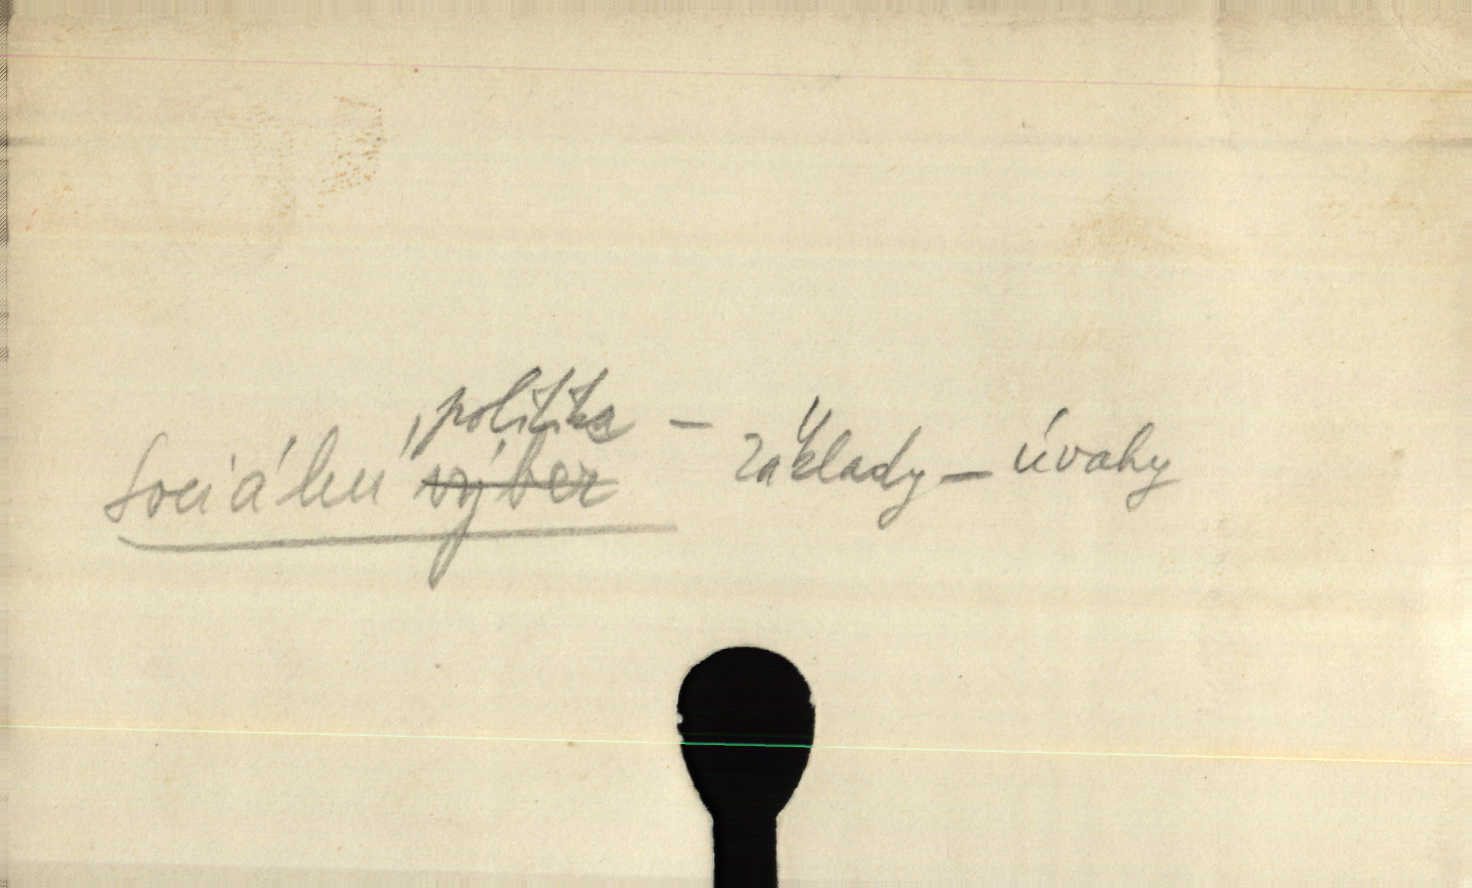 Sociální politika – základy – úvahy
výběr